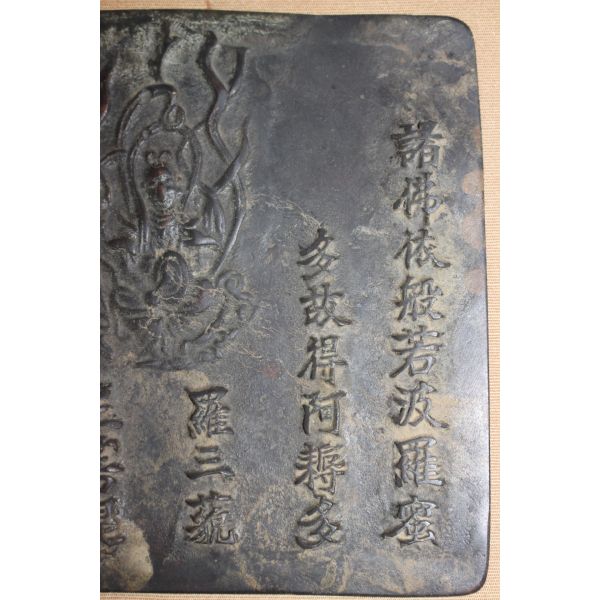 諸佛依般若波羅蜜
多故得阿耨多
羅三藐